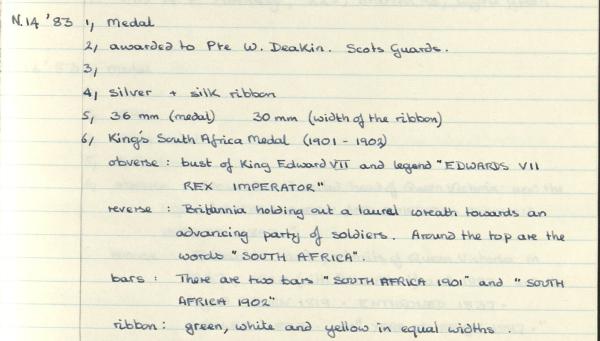 N.14 '83 1, Medal
2, awarded to Pte W. Deakin. Scots Guards.
3,
4, silver + silk ribbon
5, 36 mm (medal) 30 mm (width of the ribbon)
6, King's South Africa Medal (1901 - 1902)
obverse : bust of King Edward VII and legend "EDWARDS VII
REX IMPERATOR"
reverse : Britannia holding out a laurel wreath towards an
advancing party of soldiers. Around the top are the
words "SOUTH AFRICA".
bars : There are two bars "SOUTH AFRICA 1901" and "SOUTH
AFRICA 1902"
ribbon : green, white and yellow in equal widths.